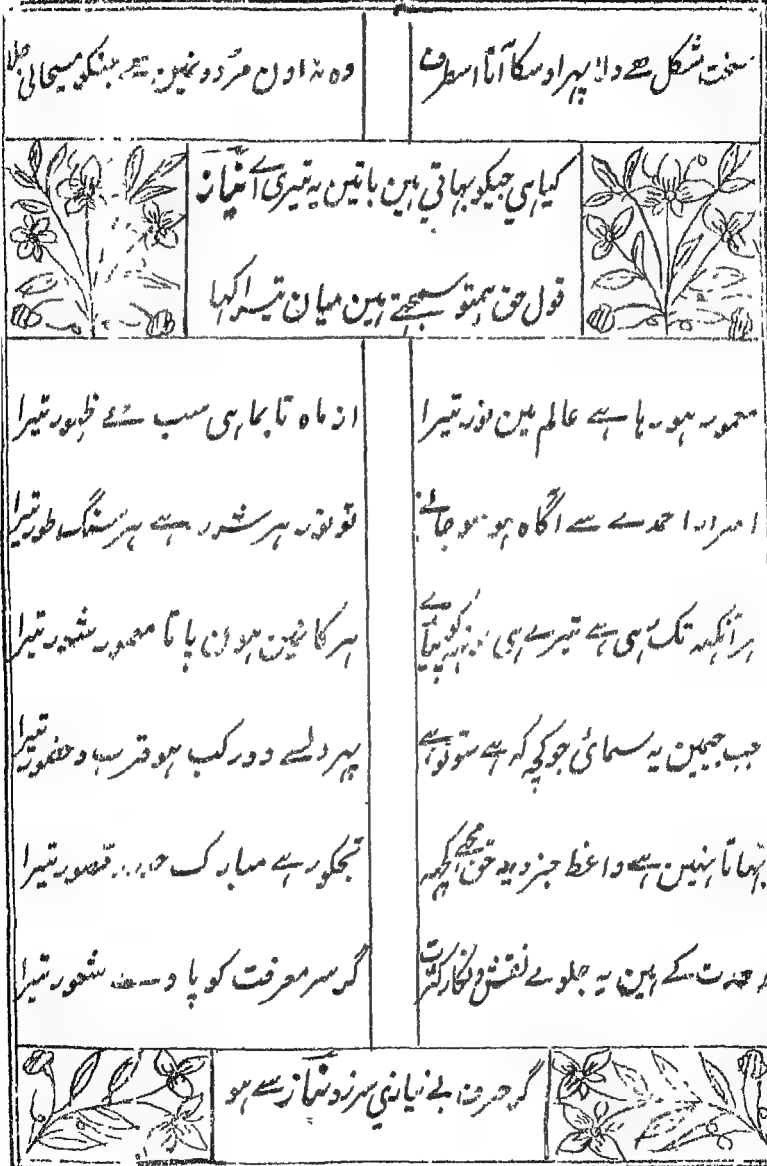 سخت مشکل ھے دلا پہر اوسکا آنا اسطرف وہ نہ اون مردونمین ھے جنکو مسیحائی جلا
کیا ہی جیکو بہاتی ہین باتین یہ تیری اے نیاز
قول حق ہمتو سمجھتے ہین میان تیرا کہا
معمور ہو رہا ہے عالم مین نور تیرا از ماہ تا بماہی سب ہے ظہور تیرا
اسرار احمدے سے آگاہ ہو سو جانے تو نور ہر شرر ہے ہر سنگ طور تیرا
ہر آنکہ تک رہی ہے تیرے ہی منہہ کو پیارے ہر کانمین ہون پاتا معمور شور تیرا
جب جیمین یہ سمائی جو کچہ کہ ہے سو تو ہے پہر دلسے دور کب ہو قرب و حضور تیرا
بہاتا نہین ہے واعظ جز دید حق مجھے کچہہ تجکو رہے مبارک حور و قصور تیرا
وحدت کے ہین یہ جلوے نقش و نگار کثرت گر سر معرفت کو پاوے شعور تیرا
گر حرف بے نیازی سرزد نیاز سے ہو